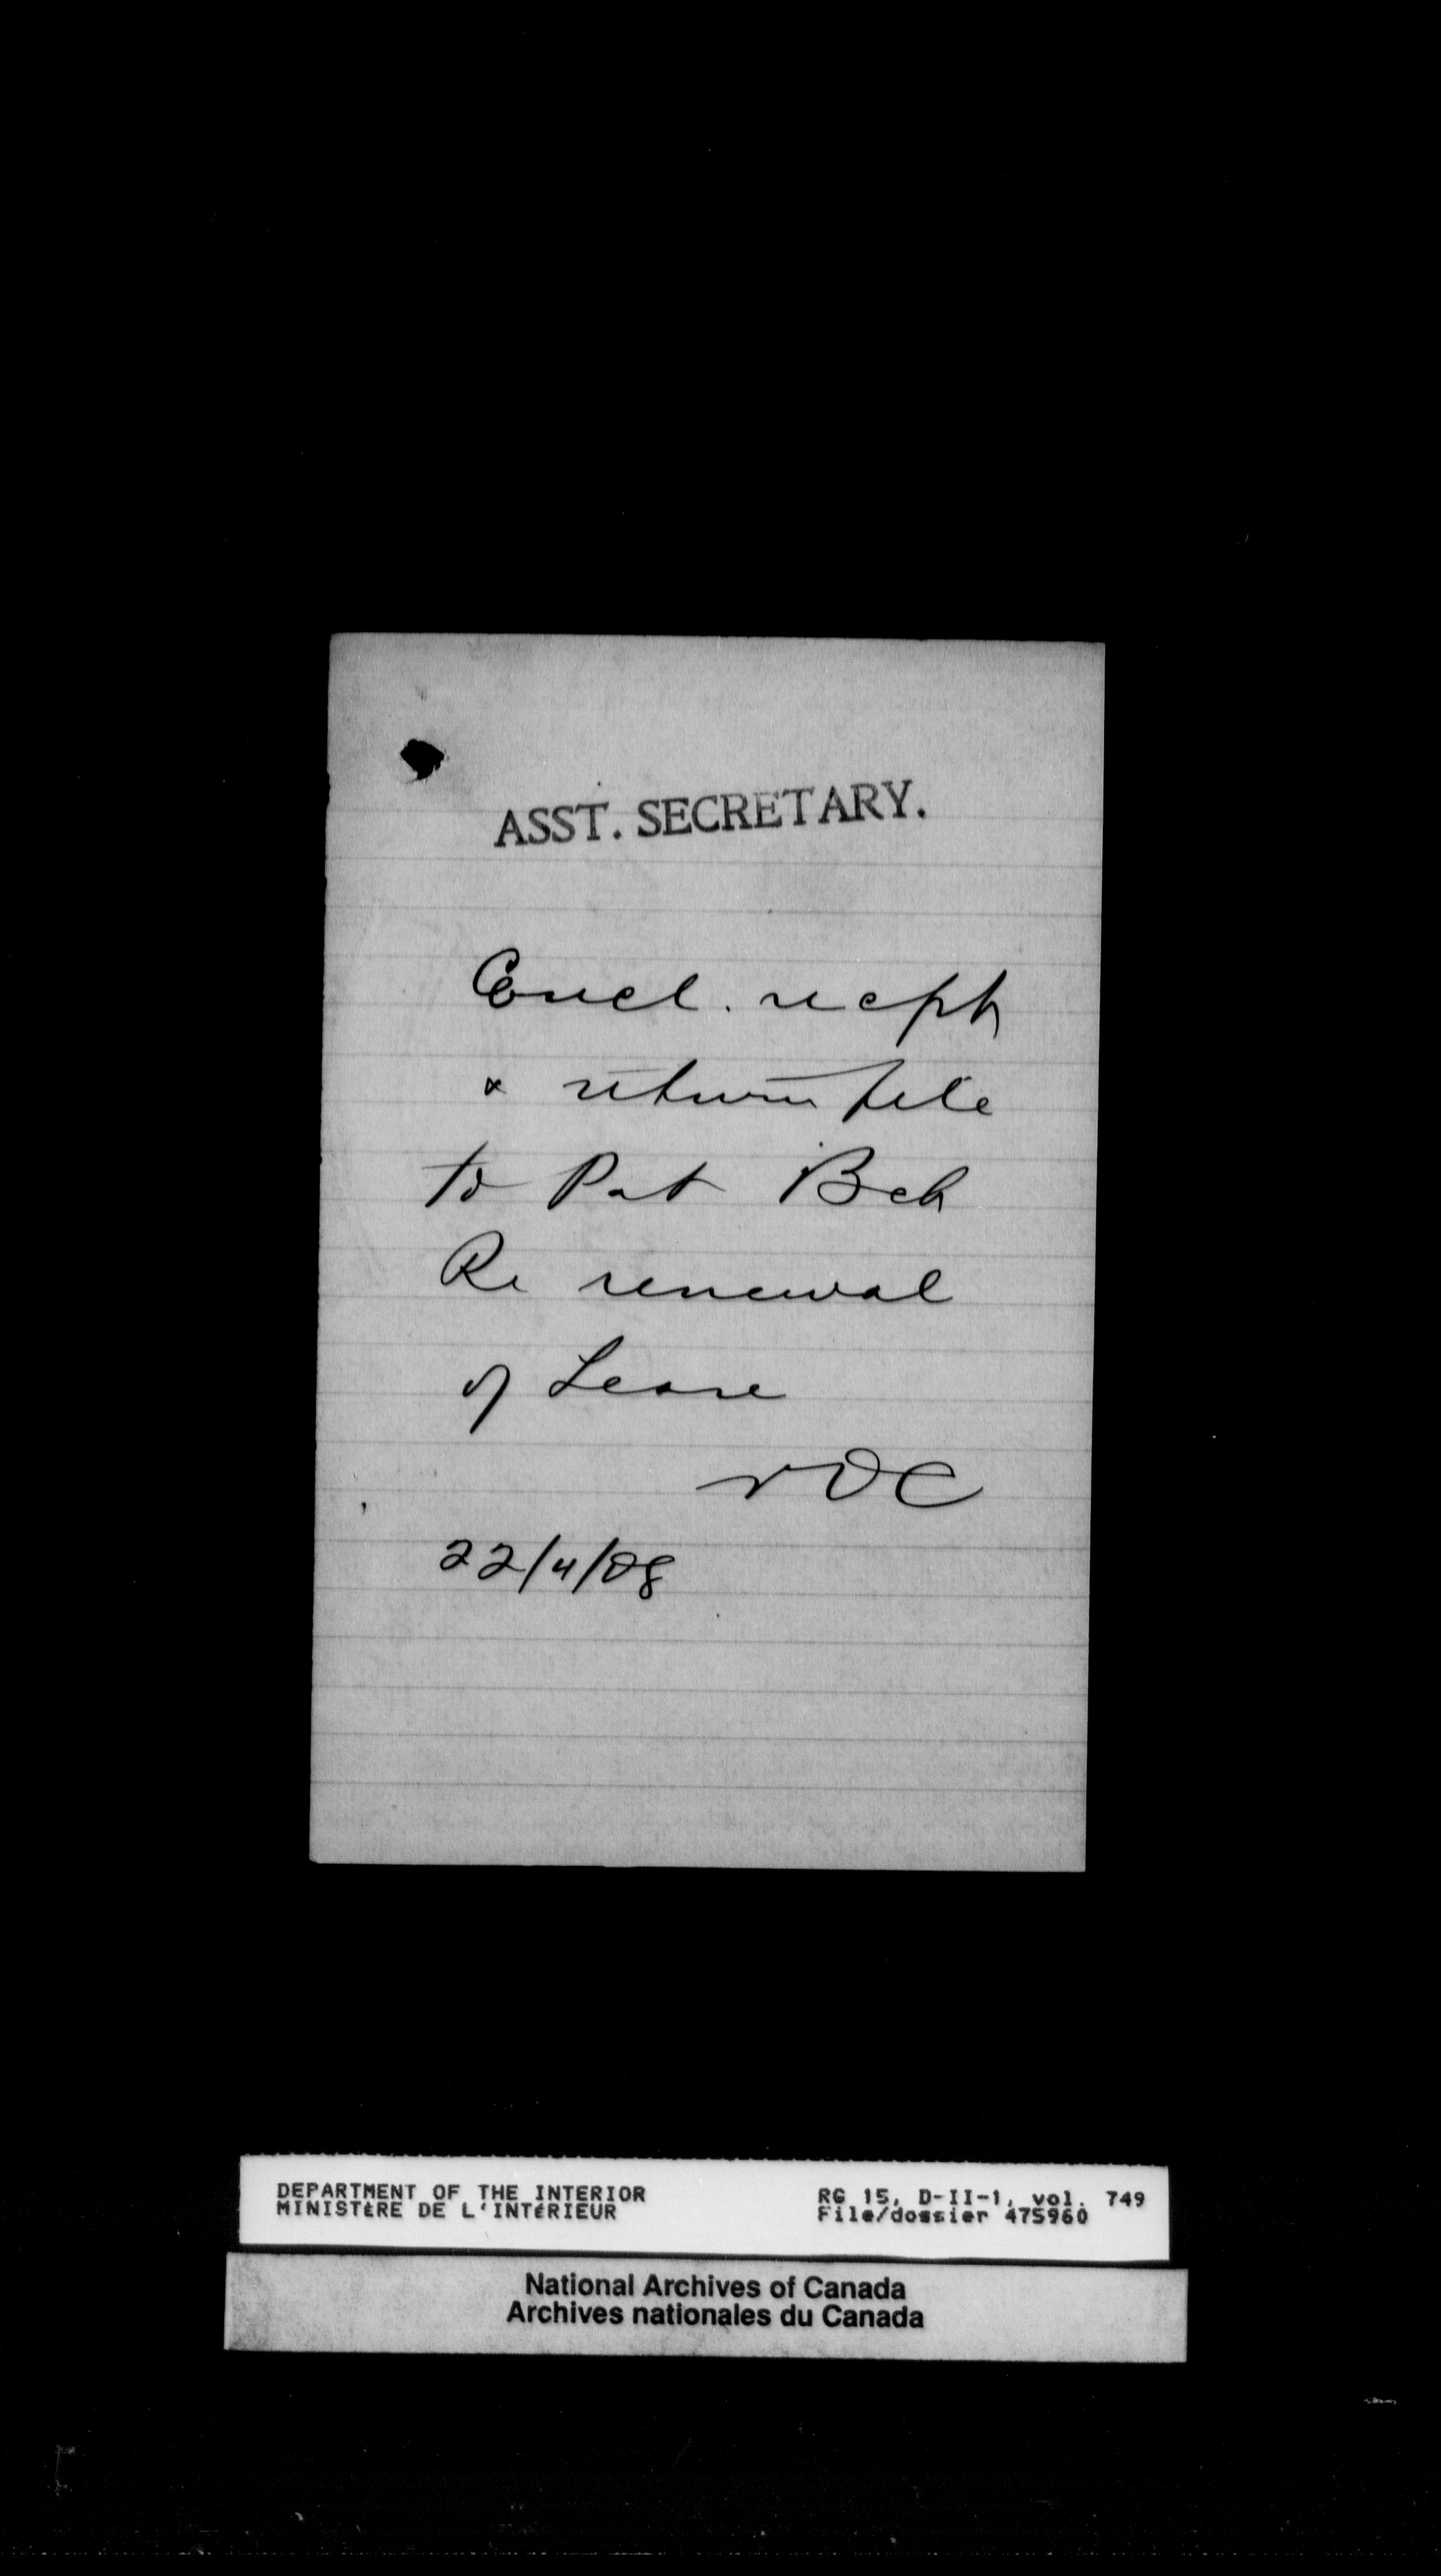 ASST. SECRETARY.
Encl. recpt
& return file
to Pat Bch
Re renewal
of Lease
22/4/08
DEPARTMENT OF THE INTERIOR
MINISTÈRE DE L'INTÉRIEUR
RG 15, D-II-1, vol. 749
File/dossier 475960
National Archives of Canada
Archives nationales du Canada